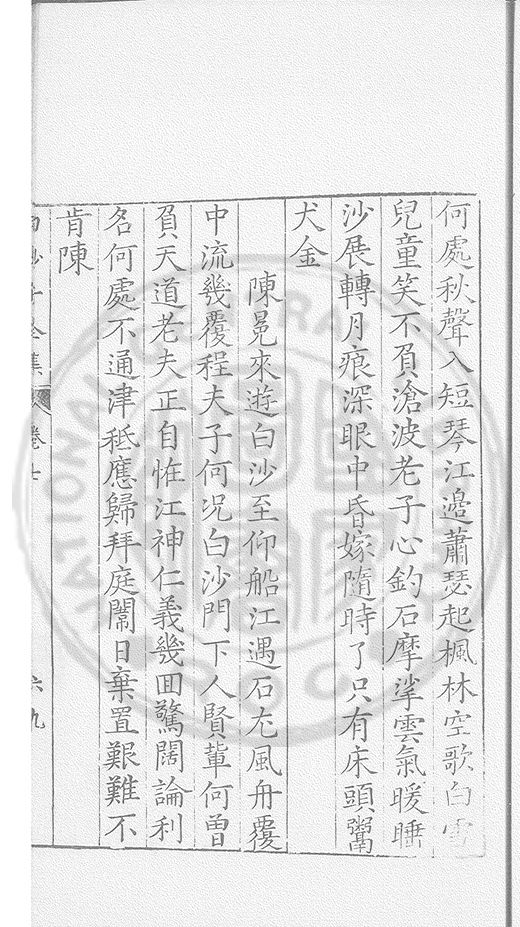 何處秋聲入短琴江邉蕭瑟起楓林空歌白雪
兒童笑不負滄波老子心釣石摩挲雲氣暖睡
沙展轉月痕深眼中昏嫁隨時了只有床頭鬻
犬金
陳冕來遊白沙至仰船江遇石尤風舟覆
中流幾覆程夫子何况白沙門下人賢軰何曾
負天道老夫正自恠江神仁義幾囬驚闊論利
名何處不通津秪應歸拜庭闈日棄置艱難不
肯陳
白沙子全集 卷七 六九
NATIONAL CENTRAL LIBRARY R.O.C.